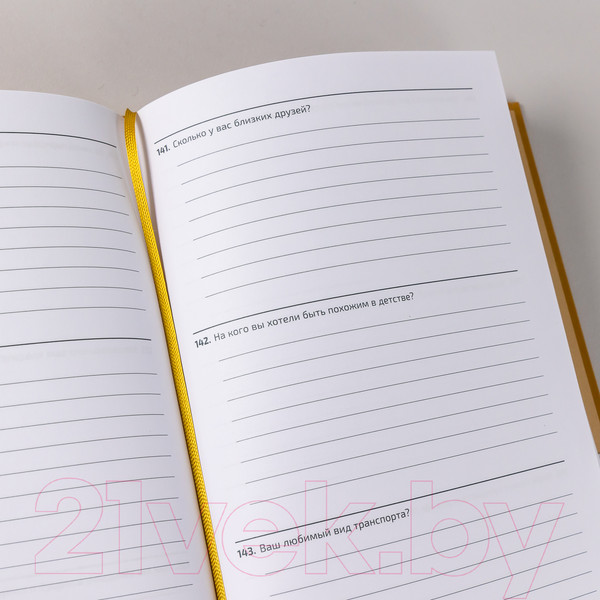 141. Сколько у вас близких друзей?
142. На кого вы хотели быть похожим в детстве?
143. Ваш любимый вид транспорта?
21vek.by